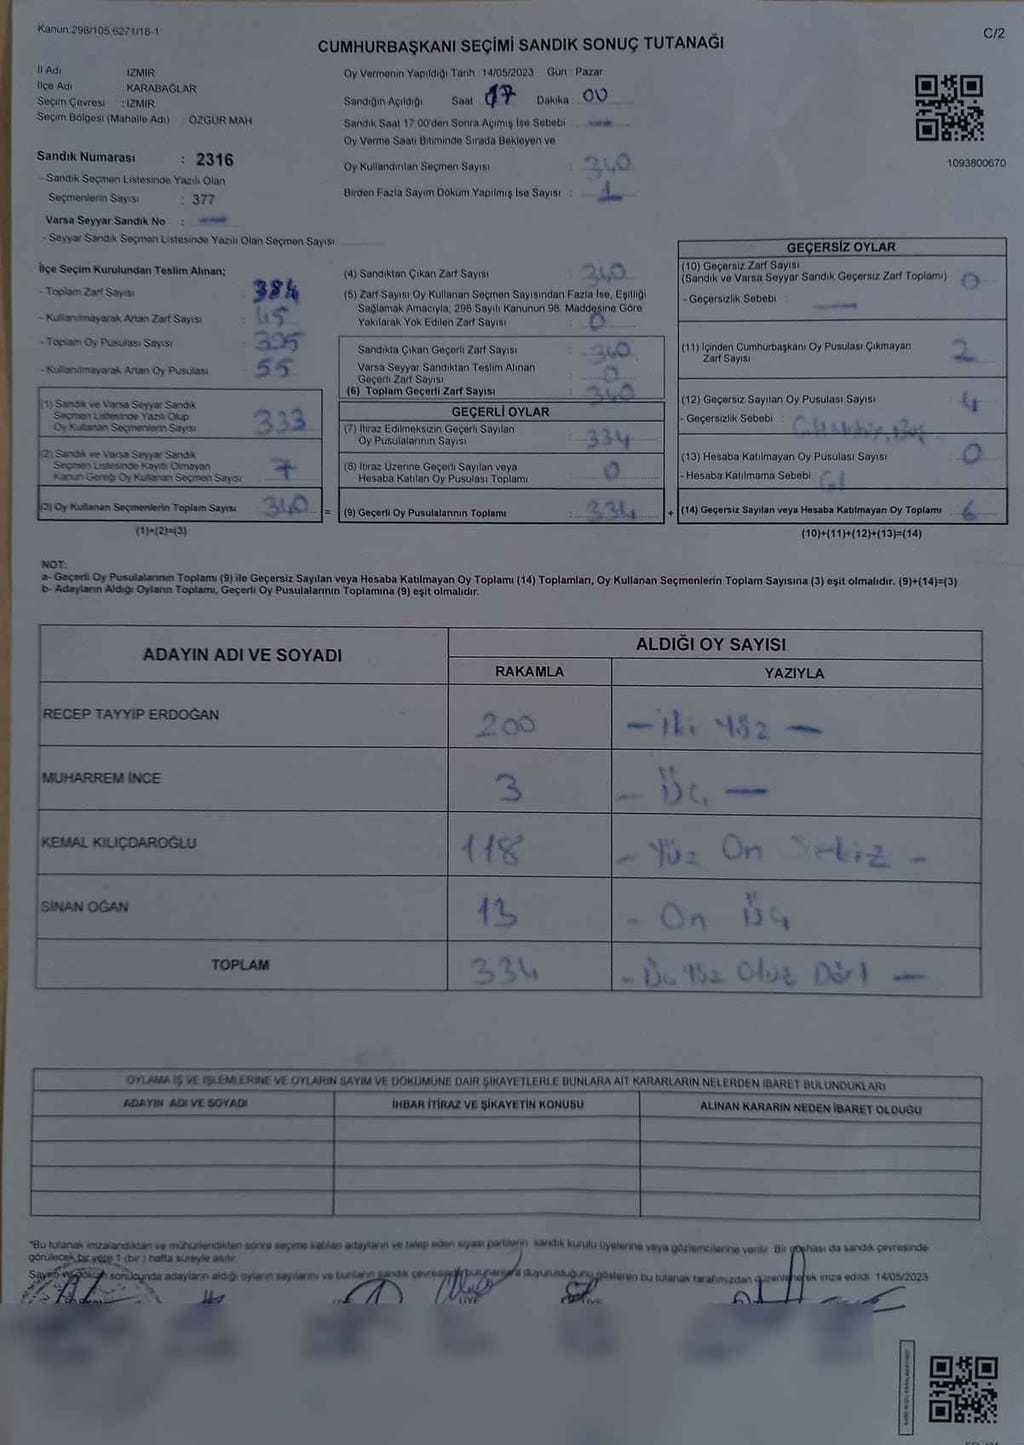 Kanun.298/105,6271/18-1
C/2
CUMHURBAŞKANI SEÇİMİ SANDIK SONUÇ TUTANAĞI
İl Adı : İZMİR
İlçe Adı KARABAĞLAR
Seçim Çevresi : İZMİR
Seçim Bölgesi (Mahalle Adı) : ÖZGÜR MAH
Oy Vermenin Yapıldığı Tarih : 14/05/2023 Gün : Pazar
Sandığın Açıldığı Saat 17 Dakika : 00
Sandık Saat 17:00'den Sonra Açımış İse Sebebi
Oy Verme Saati Bitiminde Sırada Bekleyen ve
Oy Kullandırılan Seçmen Sayısı : 340
Birden Fazla Sayım Döküm Yapılmış İse Sayısı : 1
1093800670
Sandık Numarası : 2316
- Sandık Seçmen Listesinde Yazılı Olan
Seçmenlerin Sayısı : 377
Varsa Seyyar Sandık No : —
- Seyyar Sandık Seçmen Listesinde Yazılı Olan Seçmen Sayısı
İlçe Seçim Kurulundan Teslim Alınan;
- Toplam Zarf Sayısı : 384
- Kullanılmayarak Artan Zarf Sayısı : 45
- Toplam Oy Pusulası Sayısı : 395
- Kullanılmayarak Artan Oy Pusulası 55
(1) Sandık ve Varsa Seyyar Sandık
Seçmen Listesinde Yazılı Olup
Oy Kullanan Seçmenlerin Sayısı : 333
(2) Sandık ve Varsa Seyyar Sandık
Seçmen Listesinde Kayıtlı Olmayan
Kanun Gereği Oy Kullanan Seçmen Sayısı : 7
(3) Oy Kullanan Seçmenlerin Toplam Sayısı : 340 =
(1)+(2)=(3)
(4) Sandıktan Çıkan Zarf Sayısı : 340
(5) Zarf Sayısı Oy Kullanan Seçmen Sayısından Fazla İse, Eşitliği
Sağlamak Amacıyla, 298 Sayılı Kanunun 98. Maddesine Göre
Yakılarak Yok Edilen Zarf Sayısı : 0
Sandıkta Çıkan Geçerli Zarf Sayısı : 340
Varsa Seyyar Sandıktan Teslim Alınan
Geçerli Zarf Sayısı : 0
(6) Toplam Geçerli Zarf Sayısı : 340
GEÇERLİ OYLAR
(7) İtiraz Edilmeksizin Geçerli Sayılan
Oy Pusulalarının Sayısı : 334
(8) İtiraz Üzerine Geçerli Sayılan veya
Hesaba Katılan Oy Pusulası Toplamı : 0
(9) Geçerli Oy Pusulalarının Toplamı : 334 +
GEÇERSİZ OYLAR
(10) Geçersiz Zarf Sayısı
(Sandık ve Varsa Seyyar Sandık Geçersiz Zarf Toplamı) : 0
- Geçersizlik Sebebi : —
(11) İçinden Cumhurbaşkanı Oy Pusulası Çıkmayan
Zarf Sayısı : 2
(12) Geçersiz Sayılan Oy Pusulası Sayısı : 4
- Geçersizlik Sebebi :
(13) Hesaba Katılmayan Oy Pusulası Sayısı : 0
- Hesaba Katılmama Sebebi
(14) Geçersiz Sayılan veya Hesaba Katılmayan Oy Toplamı : 6
(10)+(11)+(12)+(13)=(14)
NOT:
a- Geçerli Oy Pusulalarının Toplamı (9) ile Geçersiz Sayılan veya Hesaba Katılmayan Oy Toplamı (14) Toplamları, Oy Kullanan Seçmenlerin Toplam Sayısına (3) eşit olmalıdır. (9)+(14)=(3)
b- Adayların Aldığı Oyların Toplamı, Geçerli Oy Pusulalarının Toplamına (9) eşit olmalıdır.
ADAYIN ADI VE SOYADI ALDIĞI OY SAYISI
RAKAMLA YAZIYLA
RECEP TAYYİP ERDOĞAN 200 — İki Yüz —
MUHARREM İNCE 3 — Üç —
KEMAL KILIÇDAROĞLU 118 — Yüz On Sekiz —
SİNAN OĞAN 13 — On Üç
TOPLAM 334 — Üç Yüz Otuz Dört —
OYLAMA İŞ VE İŞLEMLERİNE VE OYLARIN SAYIM VE DÖKÜMÜNE DAİR ŞİKAYETLERLE BUNLARA AİT KARARLARIN NELERDEN İBARET BULUNDUKLARI
ADAYIN ADI VE SOYADI İHBAR İTİRAZ VE ŞİKAYETİN KONUSU ALINAN KARARIN NEDEN İBARET OLDUĞU
*Bu tutanak imzalandıktan ve mühürlendikten sonra seçime katılan adayların ve talep eden siyasi partilerin sandık kurulu üyelerine veya gözlemcilerine verilir. Bir nüshası da sandık çevresinde
görülecek bir yere 1 (bir) hafta süreyle asılır.
Sayım ve döküm sonucunda adayların aldığı oyların sayılarını ve bunların sandık çevresinde bulunanlara duyurulduğunu gösteren bu tutanak tarafımızdan düzenlenerek imza edildi. 14/05/2023